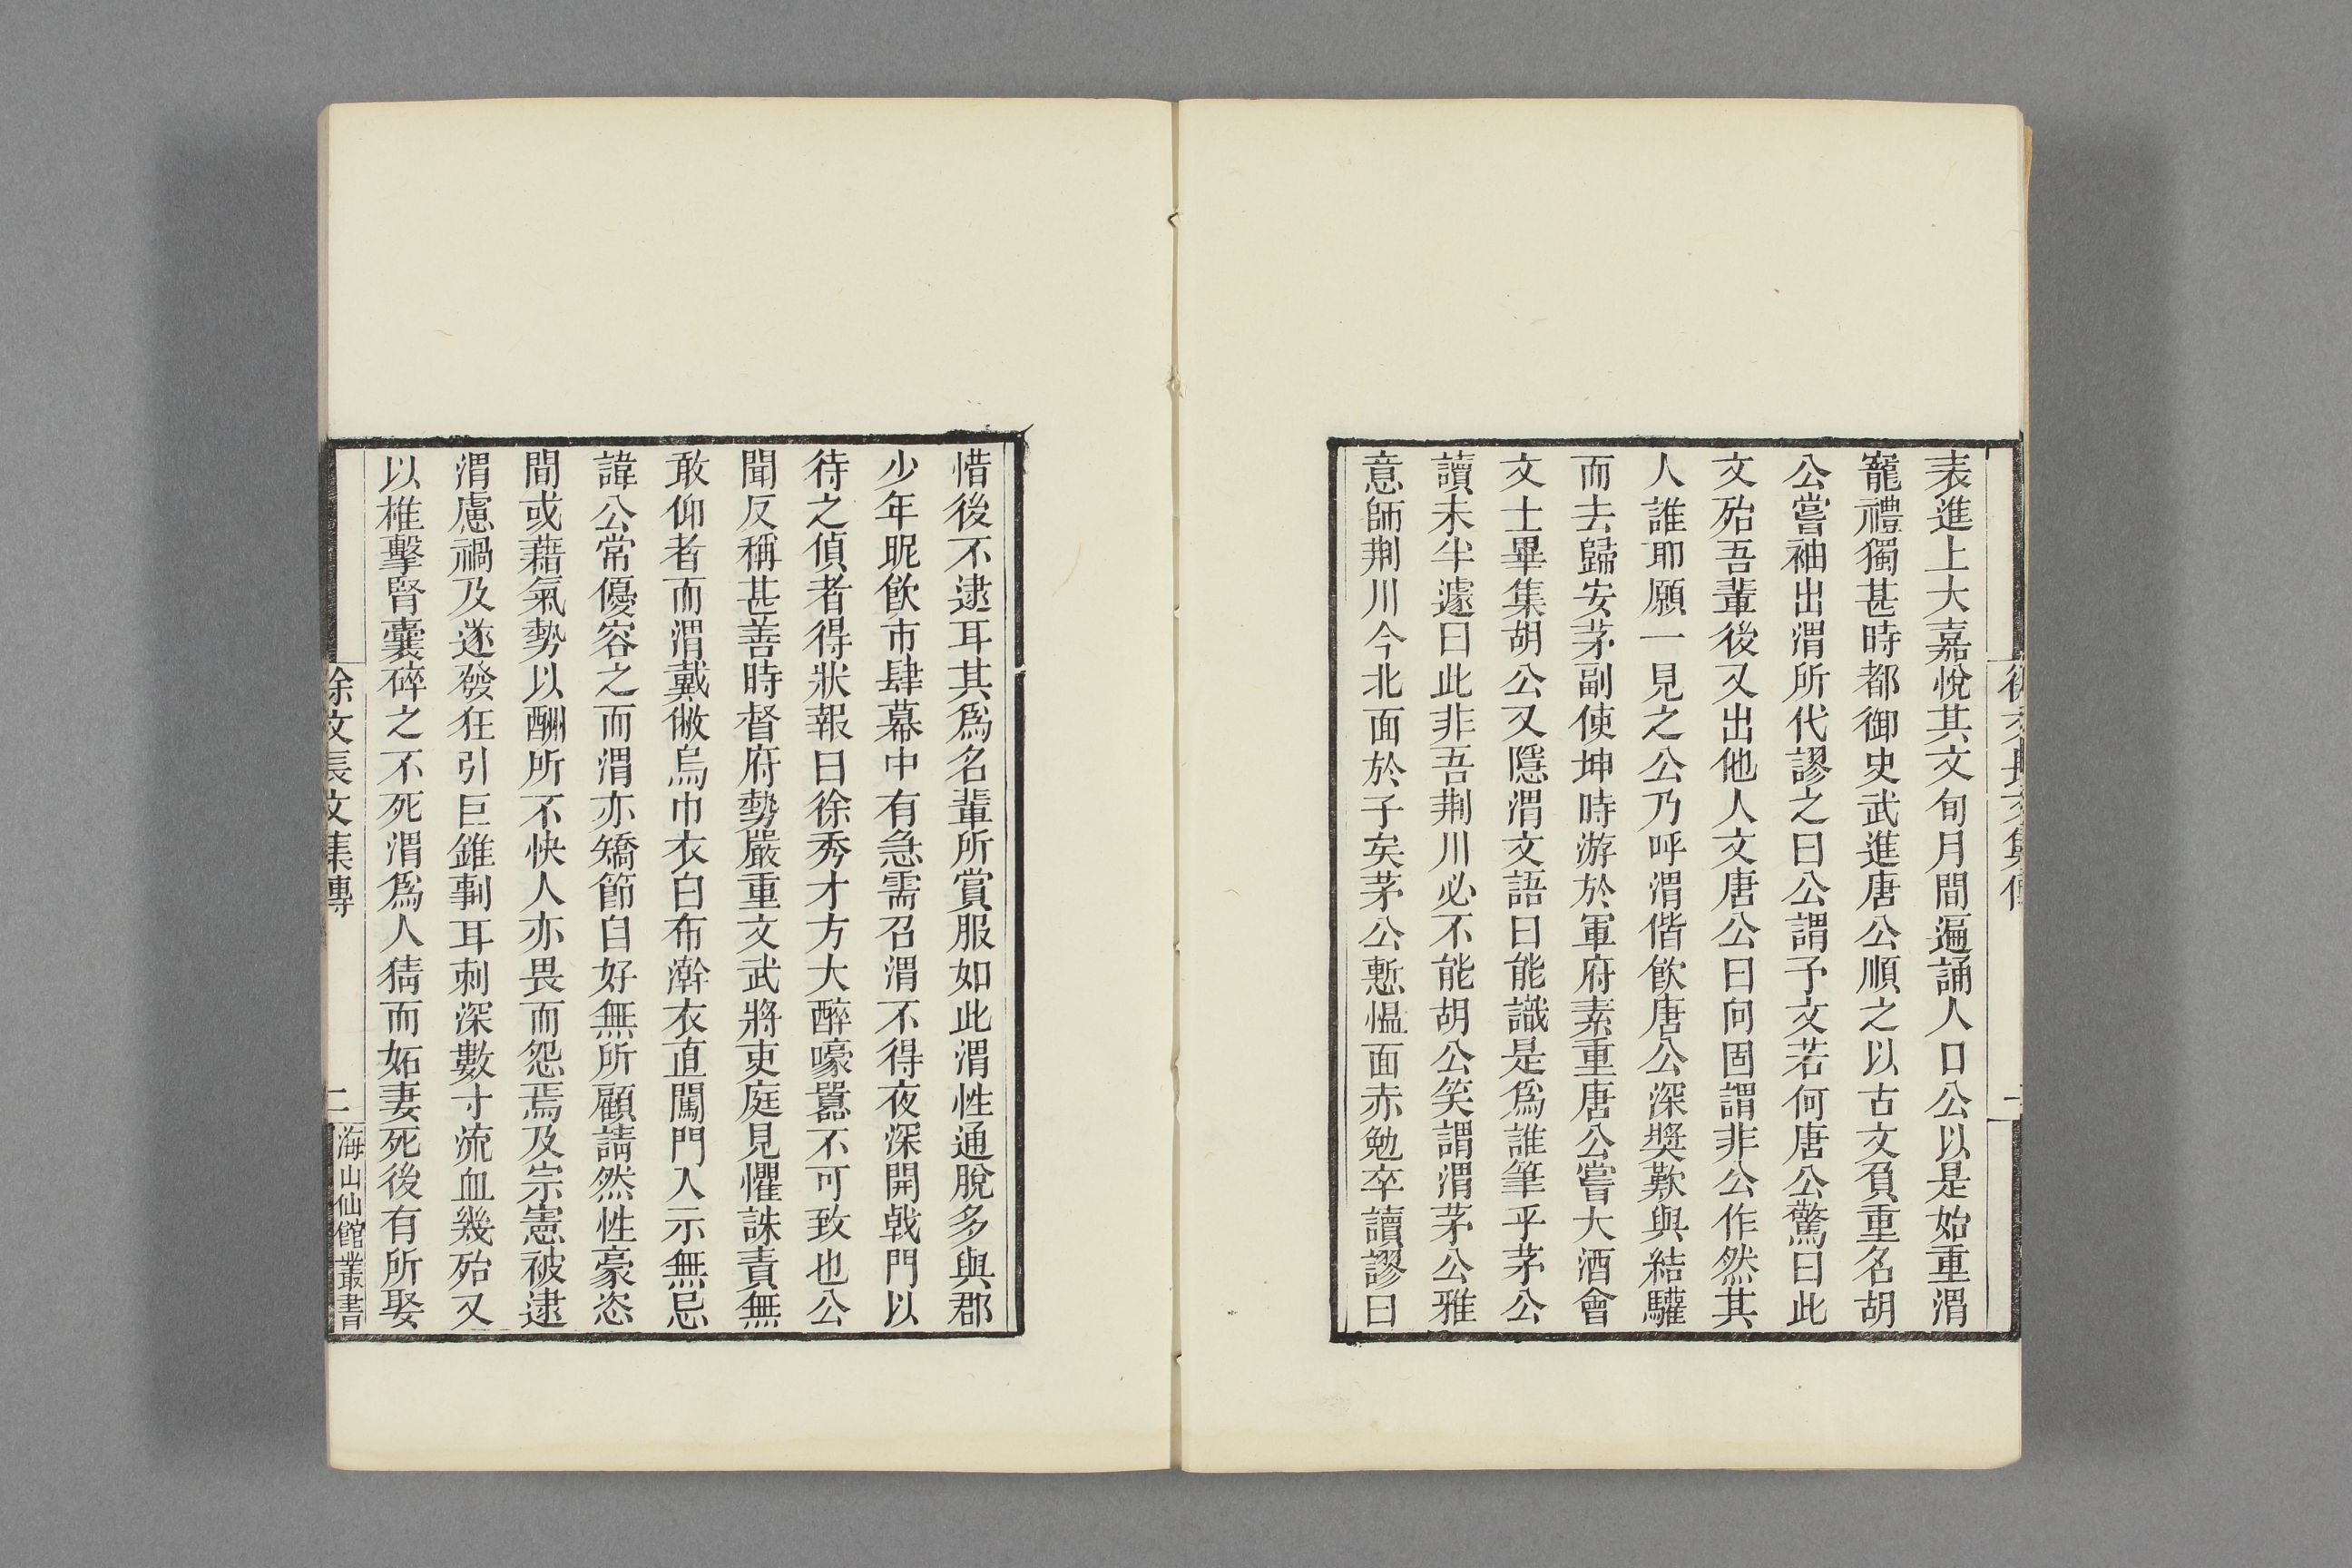 表進上大嘉悅其文旬月間遍誦人口公以是始重渭
寵禮獨甚時都御史武進唐公順之以古文負重名胡
公嘗袖出渭所代謬之曰公謂予文若何唐公驚曰此
文殆吾輩後又出他人文唐公曰向固謂非公作然其
人誰耶願一見之公乃呼渭偕飲唐公深獎歎與結驩
而去歸安茅副使坤時游於軍府素重唐公嘗大酒會
文士畢集胡公又隱渭文語曰能識是爲誰筆乎茅公
讀未半遽曰此非吾荆川必不能胡公笑謂渭茅公雅
意師荆川今北面於子矣茅公慙慍面赤勉卒讀謬曰
惜後不逮耳其爲名輩所賞服如此渭性通脫多與郡
少年昵飲市肆幕中有急需召渭不得夜深開戟門以
待之偵者得狀報曰徐秀才方大醉嚎嚚不可致也公
聞反稱甚善時督府勢嚴重文武將吏庭見懼誅責無
敢仰者而渭戴敝烏巾衣白布澣衣直闖門入示無忌
諱公常優容之而渭亦矯節自好無所顧請然性豪恣
間或藉氣勢以酬所不快人亦畏而怨焉及宗憲被逮
渭慮禍及遂發狂引巨錐剚耳刺深數寸流血幾殆又
以椎擊腎囊碎之不死渭爲人猜而妬妻死後有所娶
徐文長文集傳
二
海山仙館叢書